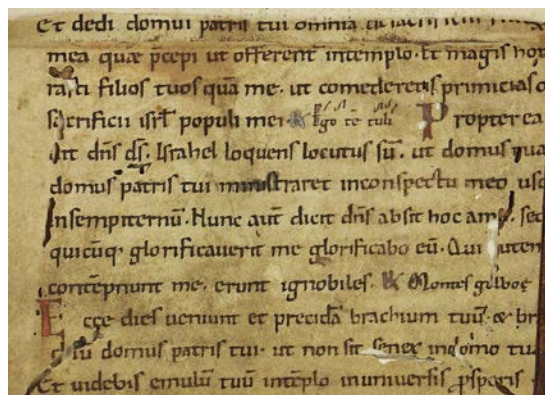 Et dedi domui patris tui omnia de sacrificiis
mea quæ p̄cepi ut offerent intemplo. Et magis hon
rasti filios tuos quā me. ut comederetis primicias o
sacrificii isrł populi mei ℟ Ego te tuli Propterea
ait dn̄s d̄s. Israhel loquens locutus sū. ut domus tua
domus patris tui ministraret inconspectu meo usq
Insempiternū. Nunc aut̄ dicit dn̄s absit hoc a me. sed
quicūq; glorificauerit me glorificabo eū. Qui autem
contēpnunt me. erunt ignobiles. ℟ Montes gelboe
Ecce dies ueniunt et precidā brachium tuū. & br
chiū domus patris tui. ut non sit senex indomo tua
Et uidebis emulū tuū intēplo inuniuersis p̄speris